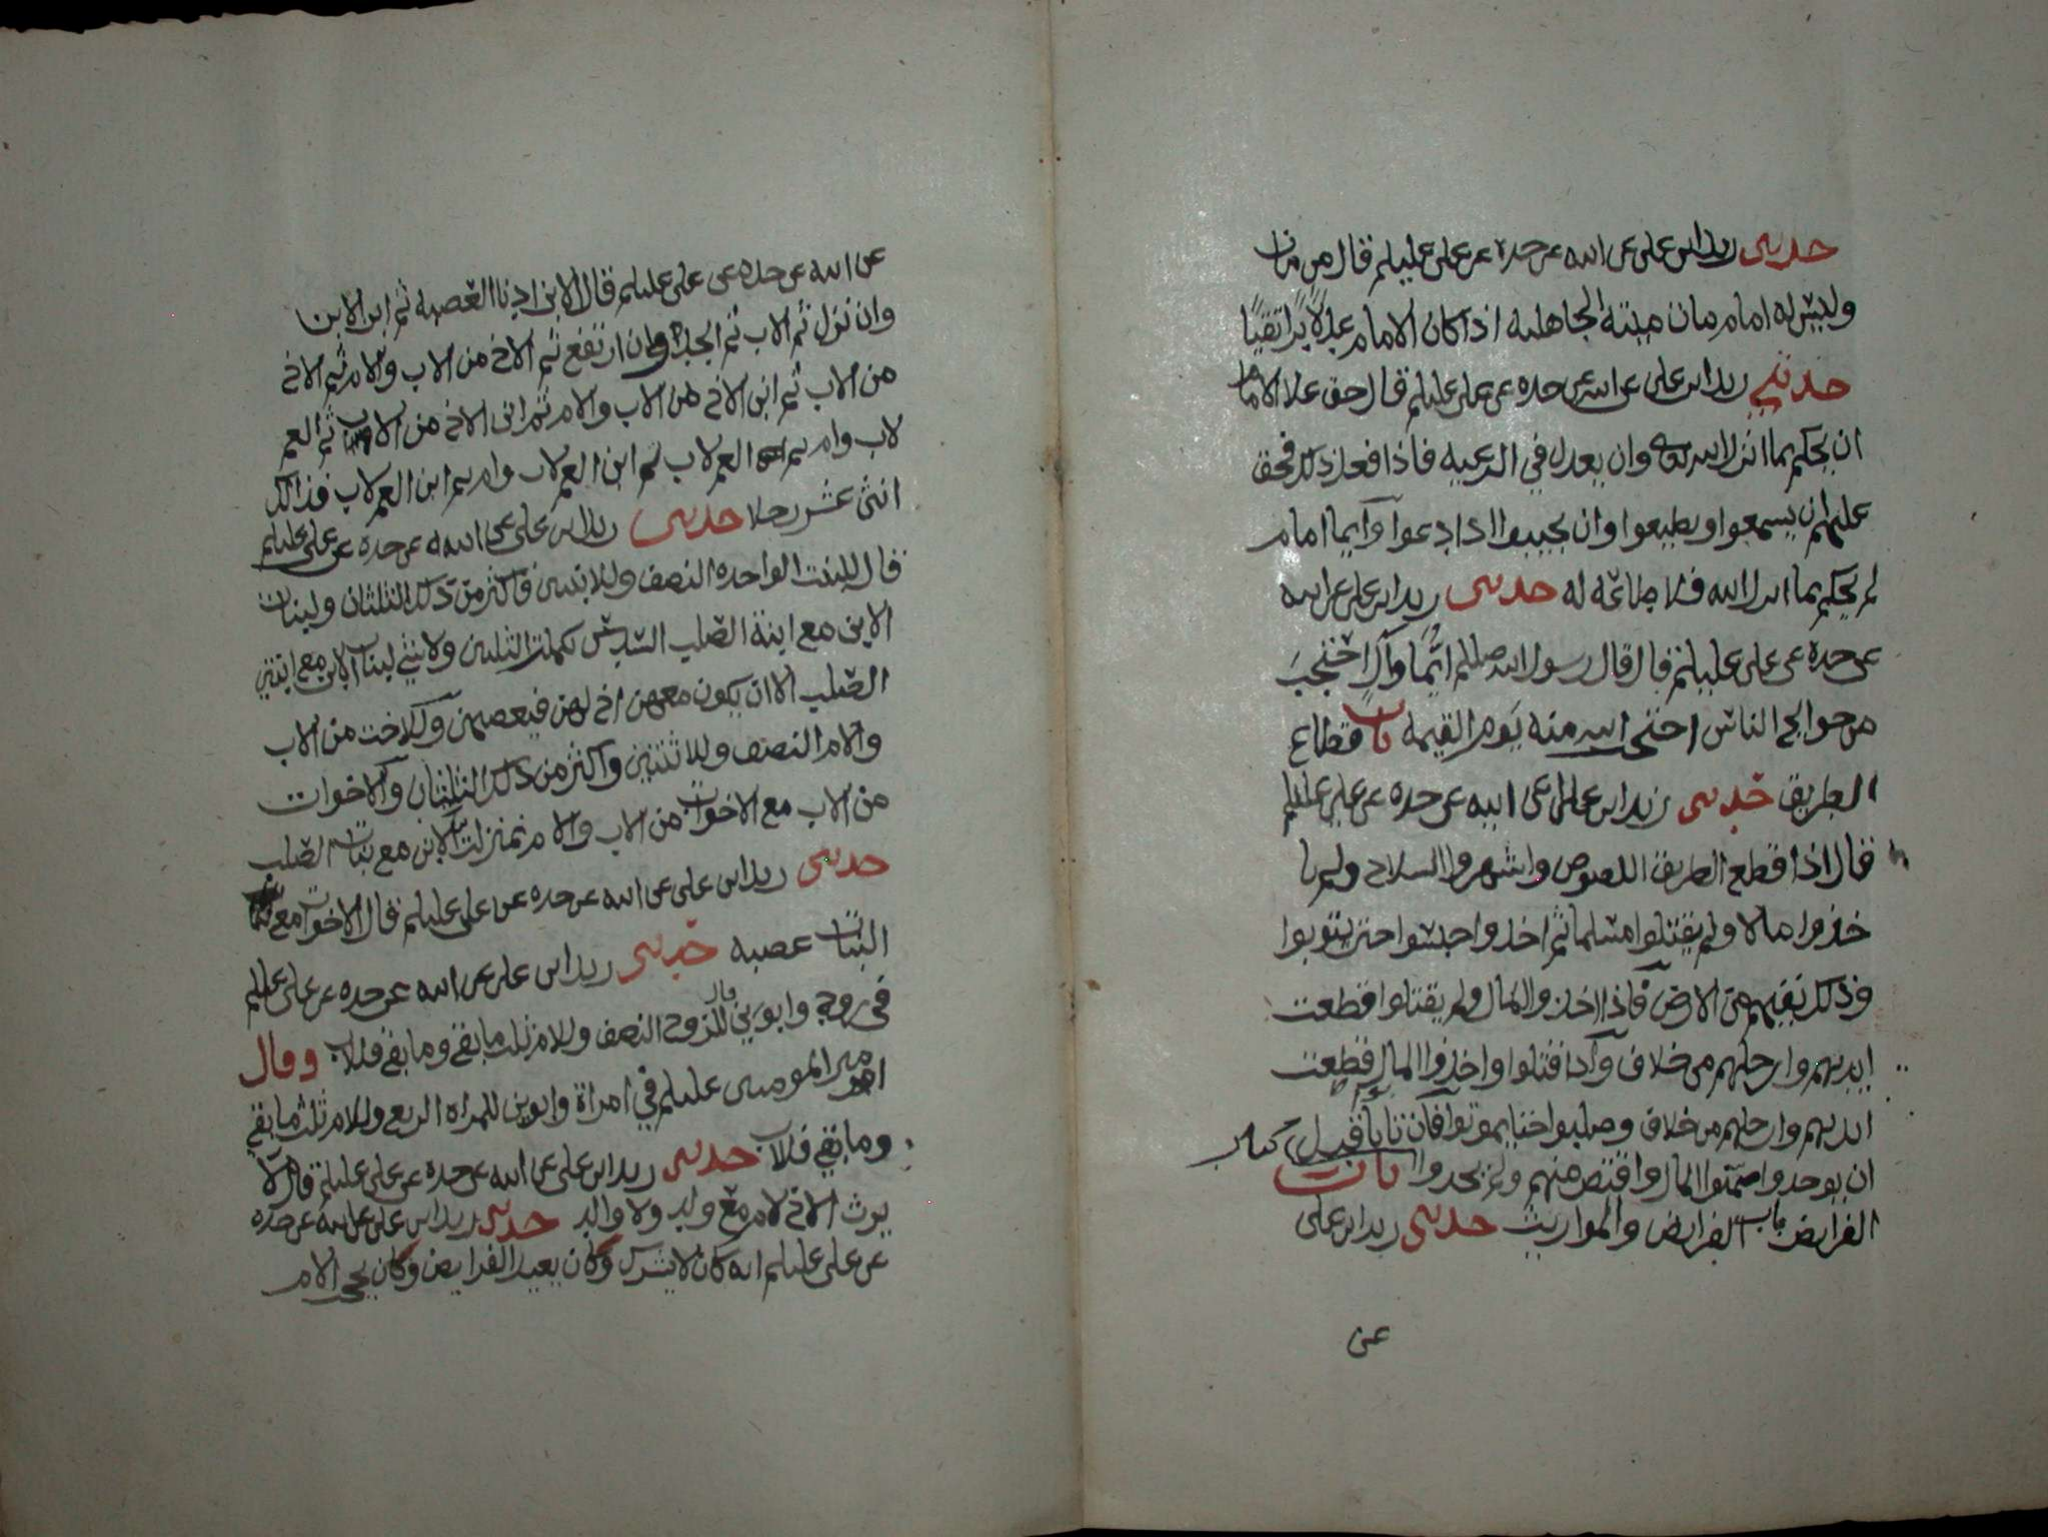 حدثني زيد ابن علي عن ابيه عن جده عن علي عليلم قال من مات
وليس له امام مات ميتة الجاهليه اذا كان الامام عدلا برا تقيا
حدثني زيد ابن علي عن ابيه عن جده عن علي عليلم قال حق علا الامام
ان يحكم بما انزل الله وان يعدل في الرعيه فاذا فعل ذلك فحق
عليهم ان يسمعوا ويطيعوا وان يجيبوا اذا دعوا وايما امام
لم يحكم بما انزل الله فلا طاعة له حدثني زيد ابن علي عن ابيه
عن جده عن علي عليلم قال قال رسول الله صللم ايما وال احتجب
من حوايج الناس احتجب الله منه يوم القيمة باب قطاع
الطريق حدثني زيد ابن علي عن ابيه عن جده عن علي عليلم
قال اذا قطع الطريق اللصوص واشهروا السلاح ولم يا
خذوا مالا ولم يقتلوا مسلما ثم اخذوا حبسوا حتى يتوبوا
وذلك نفيهم من الارض فاذا اخذوا المال ولم يقتلوا قطعت
ايديهم وارجلهم من خلاف واذا قتلوا واخذوا المال قطعت
ايديهم وارجلهم من خلاف وصلبوا حتا يموتوا فان تابوا قبل
ان يوخذوا ضمنوا المال واقتص منهم ولم يحدوا كتاب
الفرايض باب الفرايض والمواريث حدثني زيد ابن علي
عن
عن ابيه عن جده عن علي عليلم قال الابن ادنا العصبه ثم ابن الابن
وان نزل ثم الاب ثم الجد وان ارتفع ثم الاخ من الاب والام ثم الاخ
من الاب ثم ابن الاخ من الاب والام ثم ابن الاخ من الاب ثم العم
لاب وام ثم العم لاب ثم ابن العم لاب وام ثم ابن العم لاب فذالك
اثنى عشر رجلا حدثني زيد ابن علي عن ابيه عن جده عن علي عليلم
قال للبنت الواحده النصف وللابنتين فاكثر من ذلك الثلثان ولبنات
الابن مع ابنة الصلب السدس تكملة الثلثين ولا شي لبنات الابن مع ابنتي
الصلب الا ان يكون معهن اخ لهن فيعصبهن وللاخت من الاب
والام النصف وللاثنتين واكثر من ذلك الثلثان والاخوات
من الاب مع الاخوات من الاب والام بمنزلة بنات الابن مع بنات الصلب
حدثني زيد ابن علي عن ابيه عن جده عن علي عليلم قال الاخوات مع
البنات عصبه حدثني زيد ابن علي عن ابيه عن جده عن علي عليلم
في زوج وابوين قال للزوج النصف وللام ثلث ما بقي وما بقي فللاب وقال
امير المومنين عليلم في امراة وابوين للمراه الربع وللام ثلث ما بقي
وما بقي فللاب حدثني زيد ابن علي عن ابيه عن جده عن علي عليلم قال لا
يرث الاخ لام مع ولد ولا والد حدثني زيد ابن علي عن ابيه عن جده
عن علي عليلم انه كان لا يشرك وكان يعيل الفرايض وكان يحجب الام